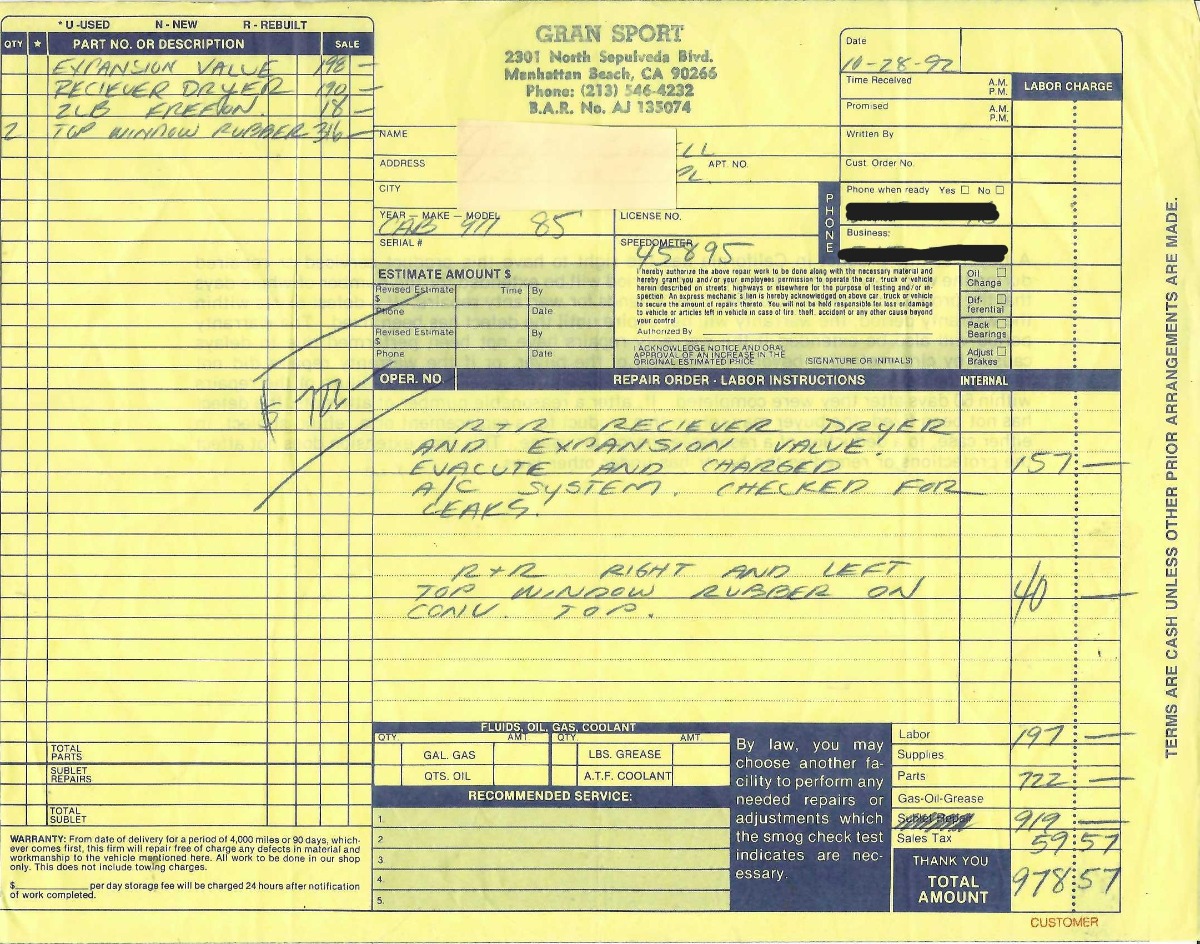 *U-USED N-NEW R-REBUILT
QTY * PART NO. OR DESCRIPTION SALE
EXPANSION VALUE 198 —
RECIEVER DRYER 190 —
2LB FREEON. 18 —
2 TOP WINDOW RUBBER 316 —
$ 722
TOTAL PARTS
SUBLET REPAIRS
TOTAL SUBLET
WARRANTY: From date of delivery for a period of 4,000 miles or 90 days, which-
ever comes first, this firm will repair free of charge any defects in material and
workmanship to the vehicle mentioned here. All work to be done in our shop
only. This does not include towing charges.
$ per day storage fee will be charged 24 hours after notification
of work completed.
GRAN SPORT
2301 North Sepulveda Blvd.
Manhattan Beach, CA 90266
Phone: (213) 546-4232
B.A.R. No. AJ 135074
NAME
ADDRESS APT. NO.
CITY
YEAR — MAKE — MODEL
CAB 911 85
LICENSE NO.
SERIAL #
SPEEDOMETER
45895
Date
10-28-92
Time Received A.M. P.M.
Promised A.M. P.M.
Written By
Cust. Order No.
PHONE
Phone when ready Yes No
Business:
LABOR CHARGE
ESTIMATE AMOUNT $
Revised Estimate Time By
$
Phone Date
Revised Estimate By
$
Phone Date
I hereby authorize the above repair work to be done along with the necessary material and
hereby grant you and/or your employees permission to operate the car, truck or vehicle
herein described on streets, highways or elsewhere for the purpose of testing and/or in-
spection. An express mechanic's lien is hereby acknowledged on above car, truck or vehicle
to secure the amount of repairs thereto. You will not be held responsible for loss or damage
to vehicle or articles left in vehicle in case of fire, theft, accident or any other cause beyond
your control.
Authorized By
I ACKNOWLEDGE NOTICE AND ORAL
APPROVAL OF AN INCREASE IN THE
ORIGINAL ESTIMATED PRICE (SIGNATURE OR INITIALS)
Oil Change
Dif-ferential
Pack Bearings
Adjust Brakes
OPER. NO. REPAIR ORDER - LABOR INSTRUCTIONS INTERNAL
R+R RECIEVER DRYER
AND EXPANSION VALUE!
EVACUTE AND CHARGED 157 —
A/C SYSTEM. CHECKED FOR
LEAKS.
R+R RIGHT AND LEFT
TOP WINDOW RUBBER ON 40 —
CONV. TOP.
FLUIDS, OIL, GAS, COOLANT
QTY. AMT. QTY. AMT.
GAL. GAS LBS. GREASE
QTS. OIL A.T.F. COOLANT
RECOMMENDED SERVICE:
1.
2.
3.
4.
5.
By law, you may
choose another fa-
cility to perform any
needed repairs or
adjustments which
the smog check test
indicates are nec-
essary.
Labor 197 —
Supplies
Parts 722 —
Gas-Oil-Grease
Sublet Repair 919 —
Sales Tax 59 57
THANK YOU
TOTAL AMOUNT 978 57
CUSTOMER
TERMS ARE CASH UNLESS OTHER PRIOR ARRANGEMENTS ARE MADE.